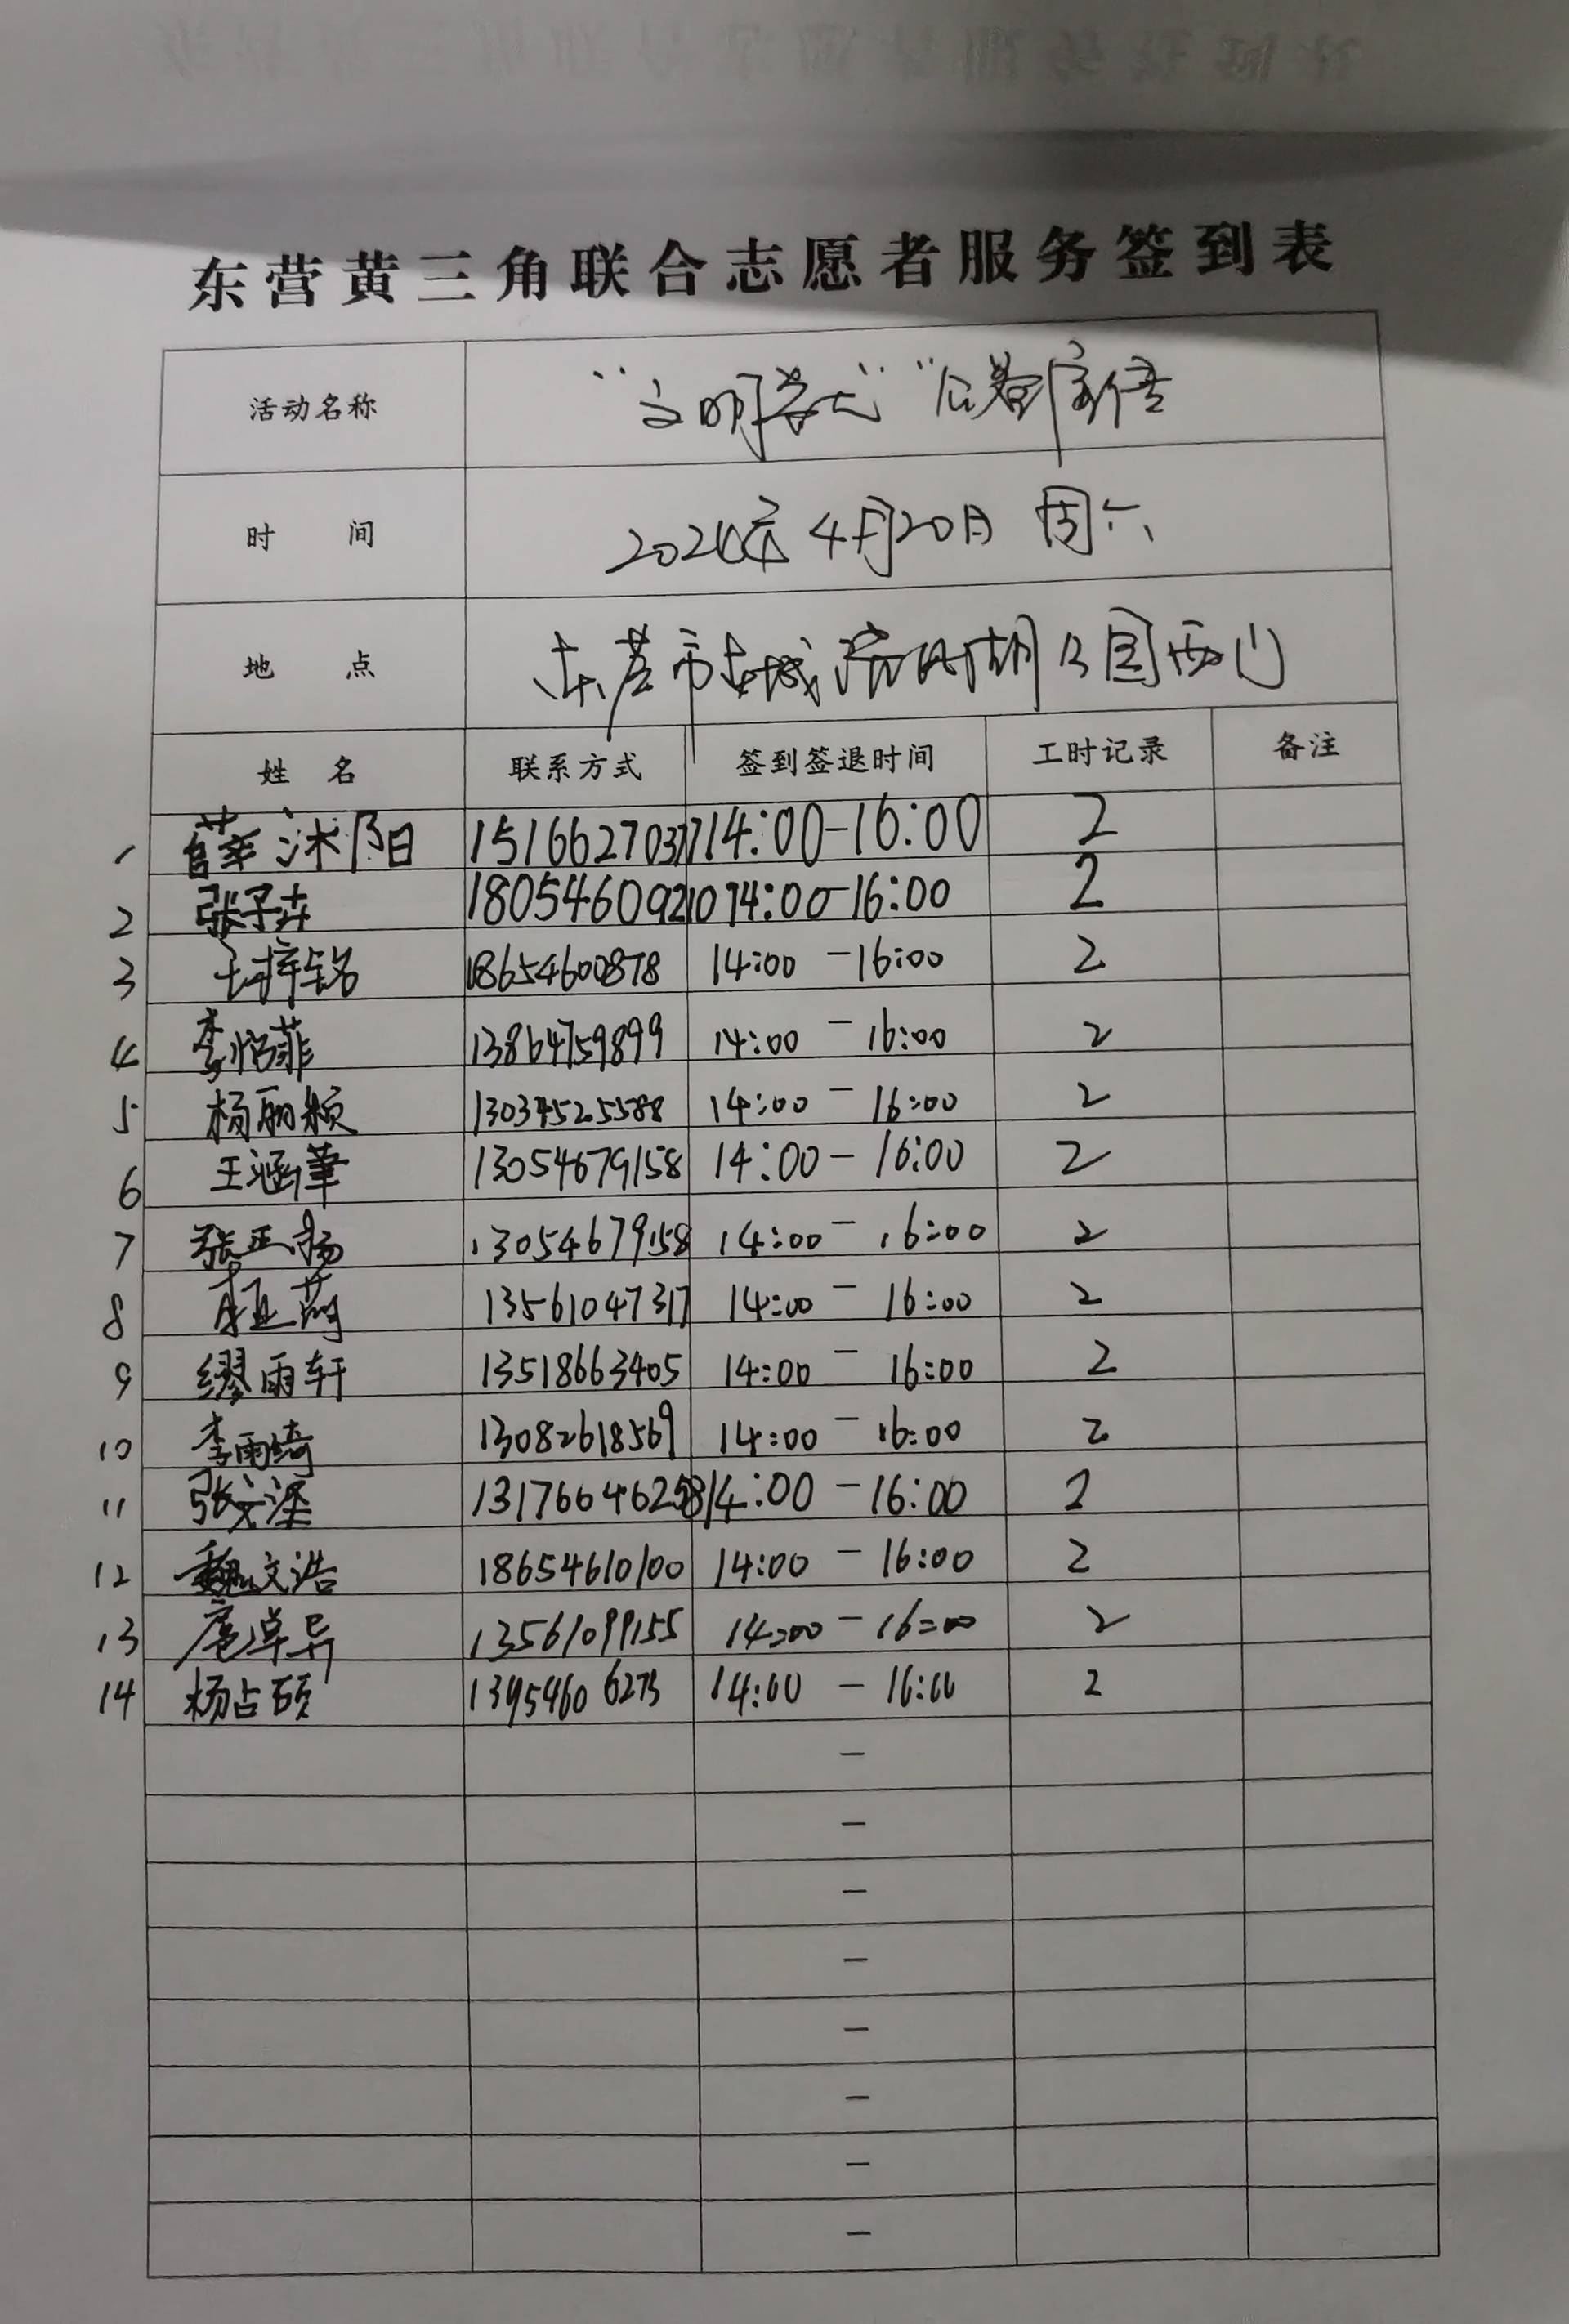 东营黄三角联合志愿者服务签到表
活动名称 "文明
时 间 2024年4月20日 周六
地 点 东营市东城清风湖公园西门
姓 名 联系方式 签到签退时间 工时记录 备注
1 薛沐阳 15166270377 14:00-16:00 2
2 张子卉 18054609210 14:00-16:00 2
3 王梓铭 18654600878 14:00-16:00 2
4 李怡菲 13864759899 14:00-16:00 2
5 杨丽颖 14:00-16:00 2
6 王涵 13054679158 14:00-16:00 2
7 张正扬 13054679158 14:00-16:00 2
8 13561047317 14:00-16:00 2
9 缪雨轩 13518663405 14:00-16:00 2
10 李雨绮 13082618569 14:00-16:00 2
11 张文泽 13176646258 14:00-16:00 2
12 魏文浩 18654610100 14:00-16:00 2
13 13561099155 14:00-16:00 2
14 杨占硕 13954606273 14:00-16:00 2
－
－
－
－
－
－
－
－